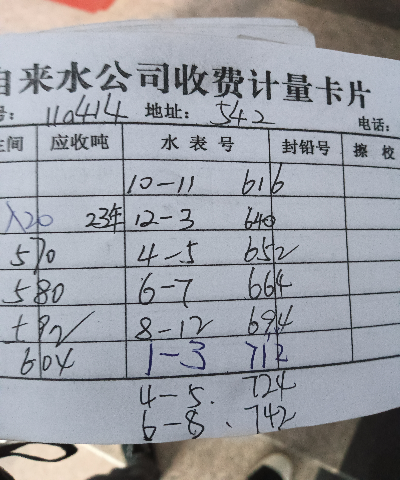 自来水公司收费计量卡片
号: 110414 地址: 542 电话:
间 应收吨 水表号 封铅号 擦校
10-11 616
入20 23年 12-3 640
570 4-5 652
580 6-7 664
592 8-12 694
604 1-3 712
4-5. 724
6-8、742